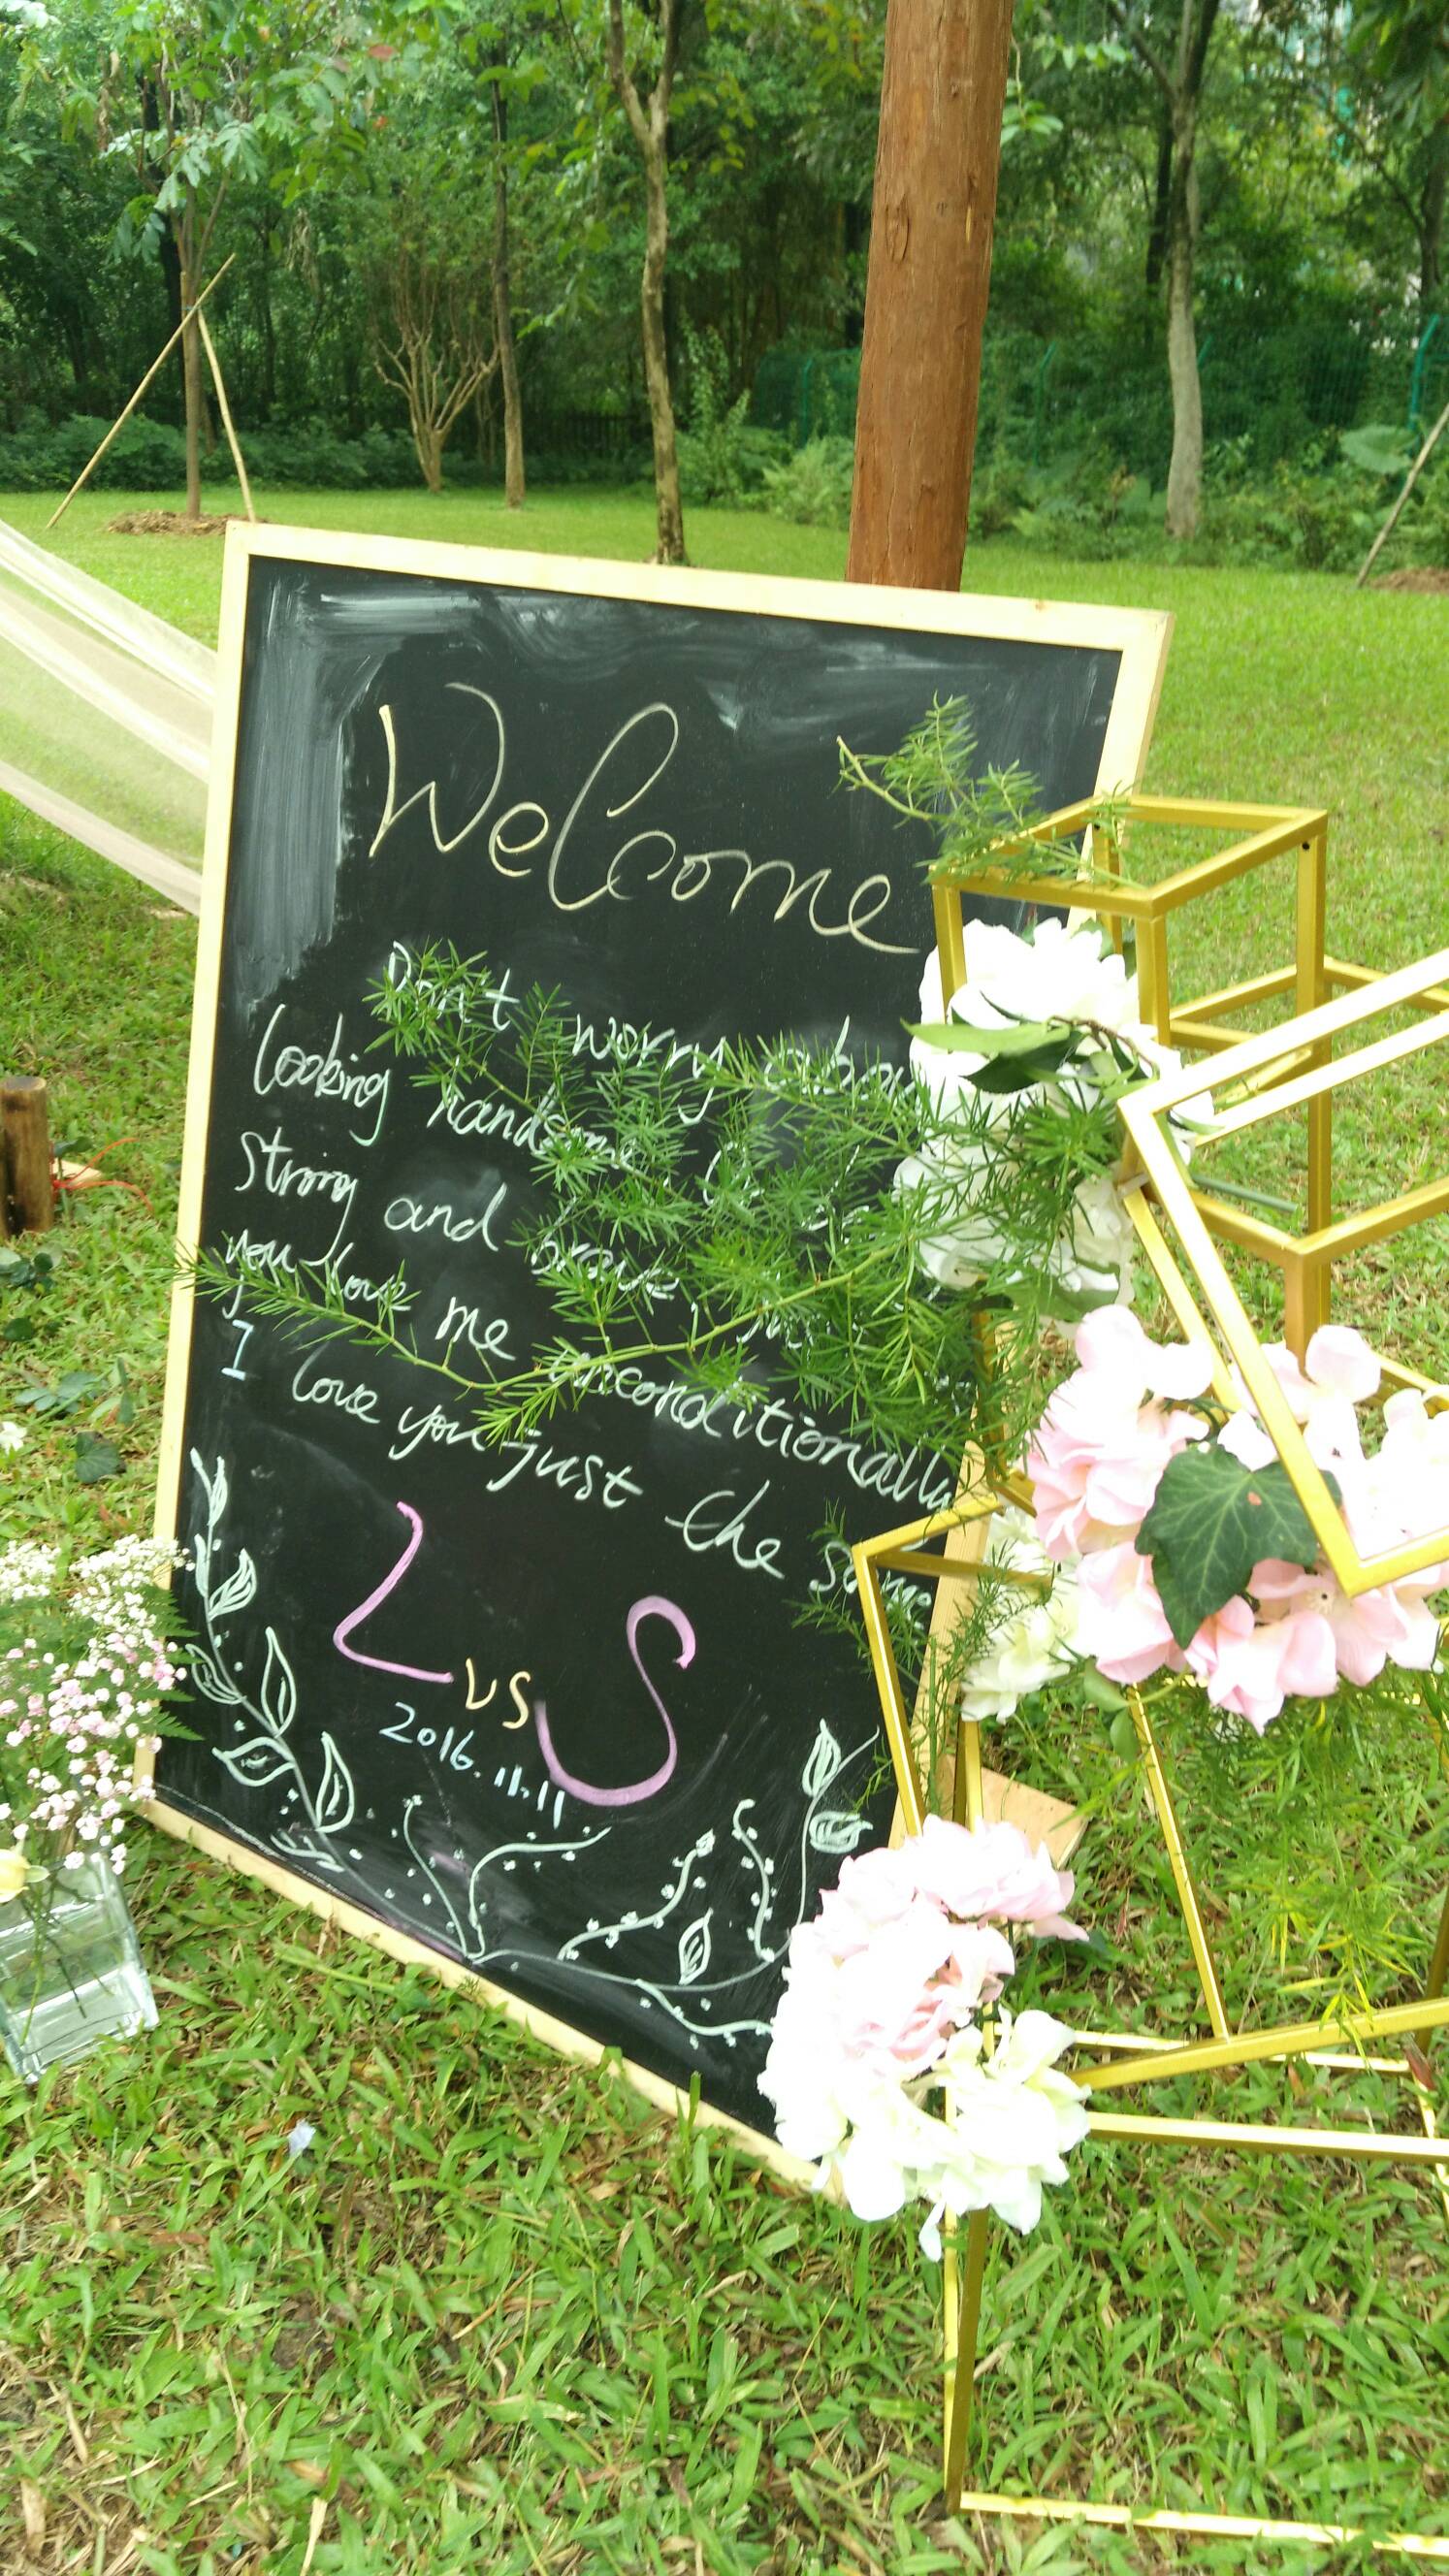 Welcome
Don't worry about
looking handsome
strong and brave,
you love me unconditionally
I love you just the same
L vs S
2016.11.11